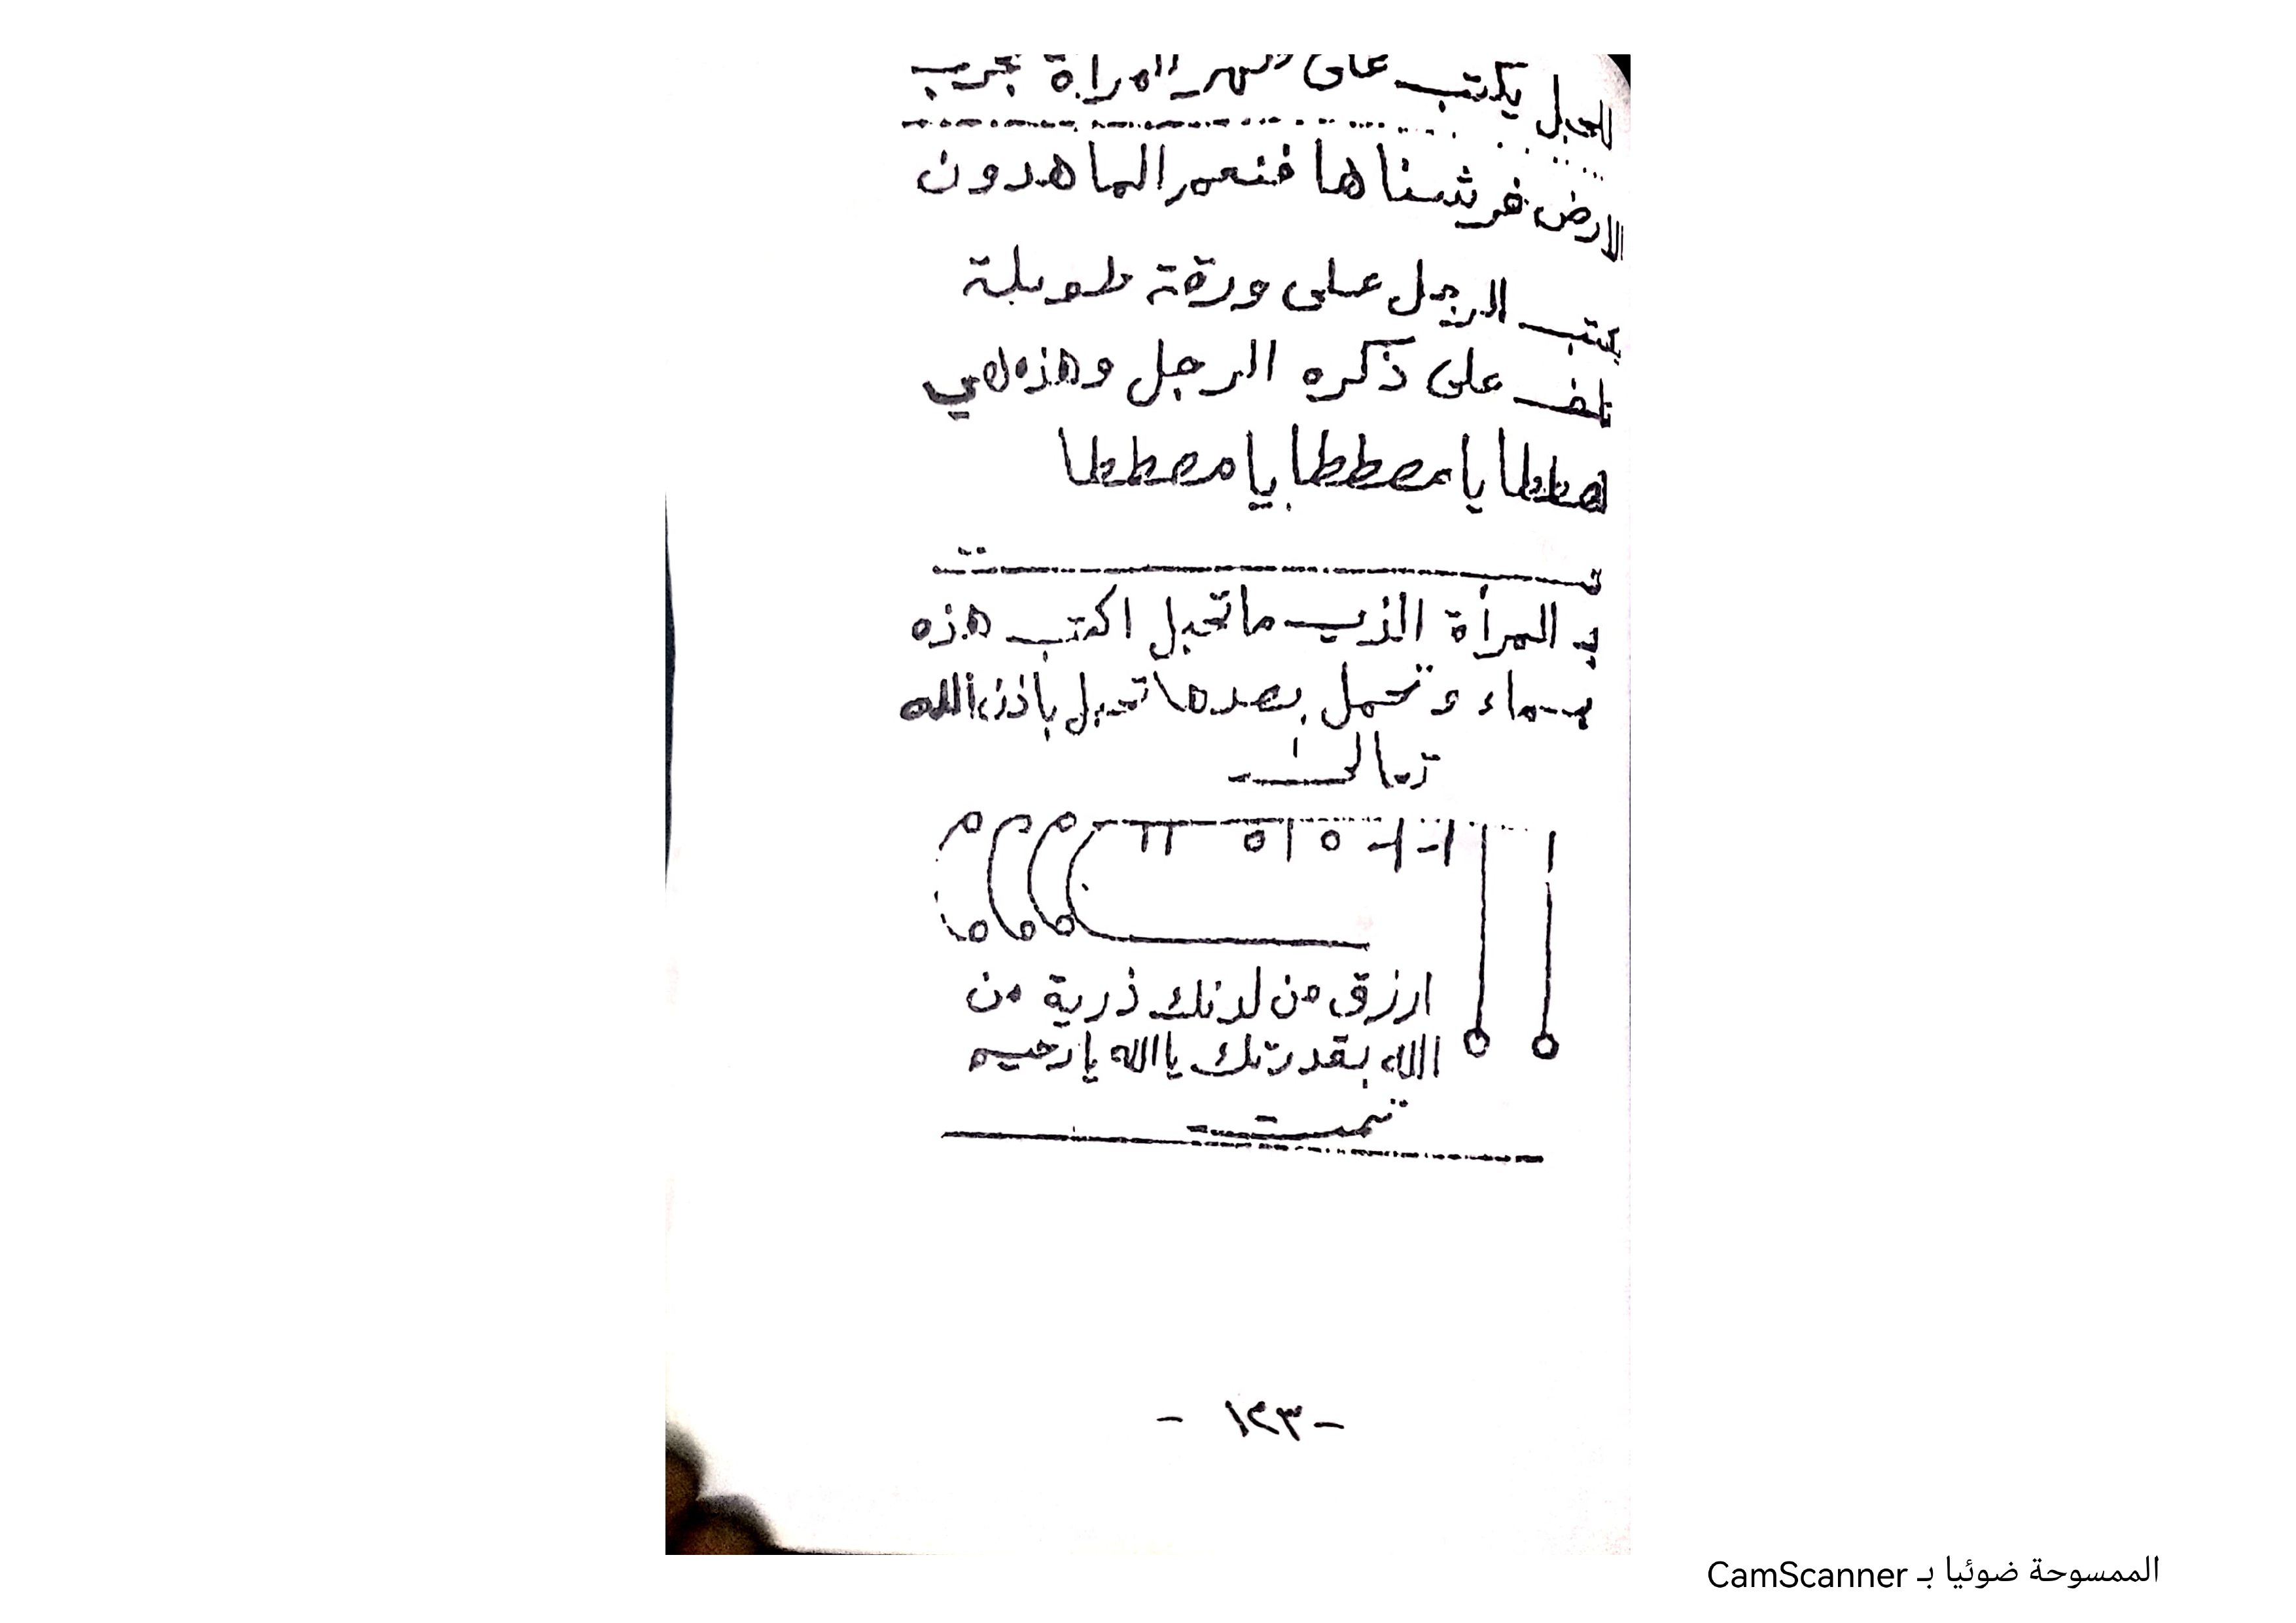 للحبل يكتب على ظهر المرأة مجرب
الارض فرشناها فنعم الماهدون
يكتب الرجل على ورقة طويلة
تلف على ذكره الرجل وهذه هي
يا مصططا يا مصططا
المرأة الذي ما تحبل اكتب هذه
وتحمل بعدها تحبل باذن الله
تعالى
ارزق من لدنك ذرية من
الله بقدرتك يا الله يا رحيم
تمت
- ١٢٣ -
الممسوحة ضوئيا بـ CamScanner